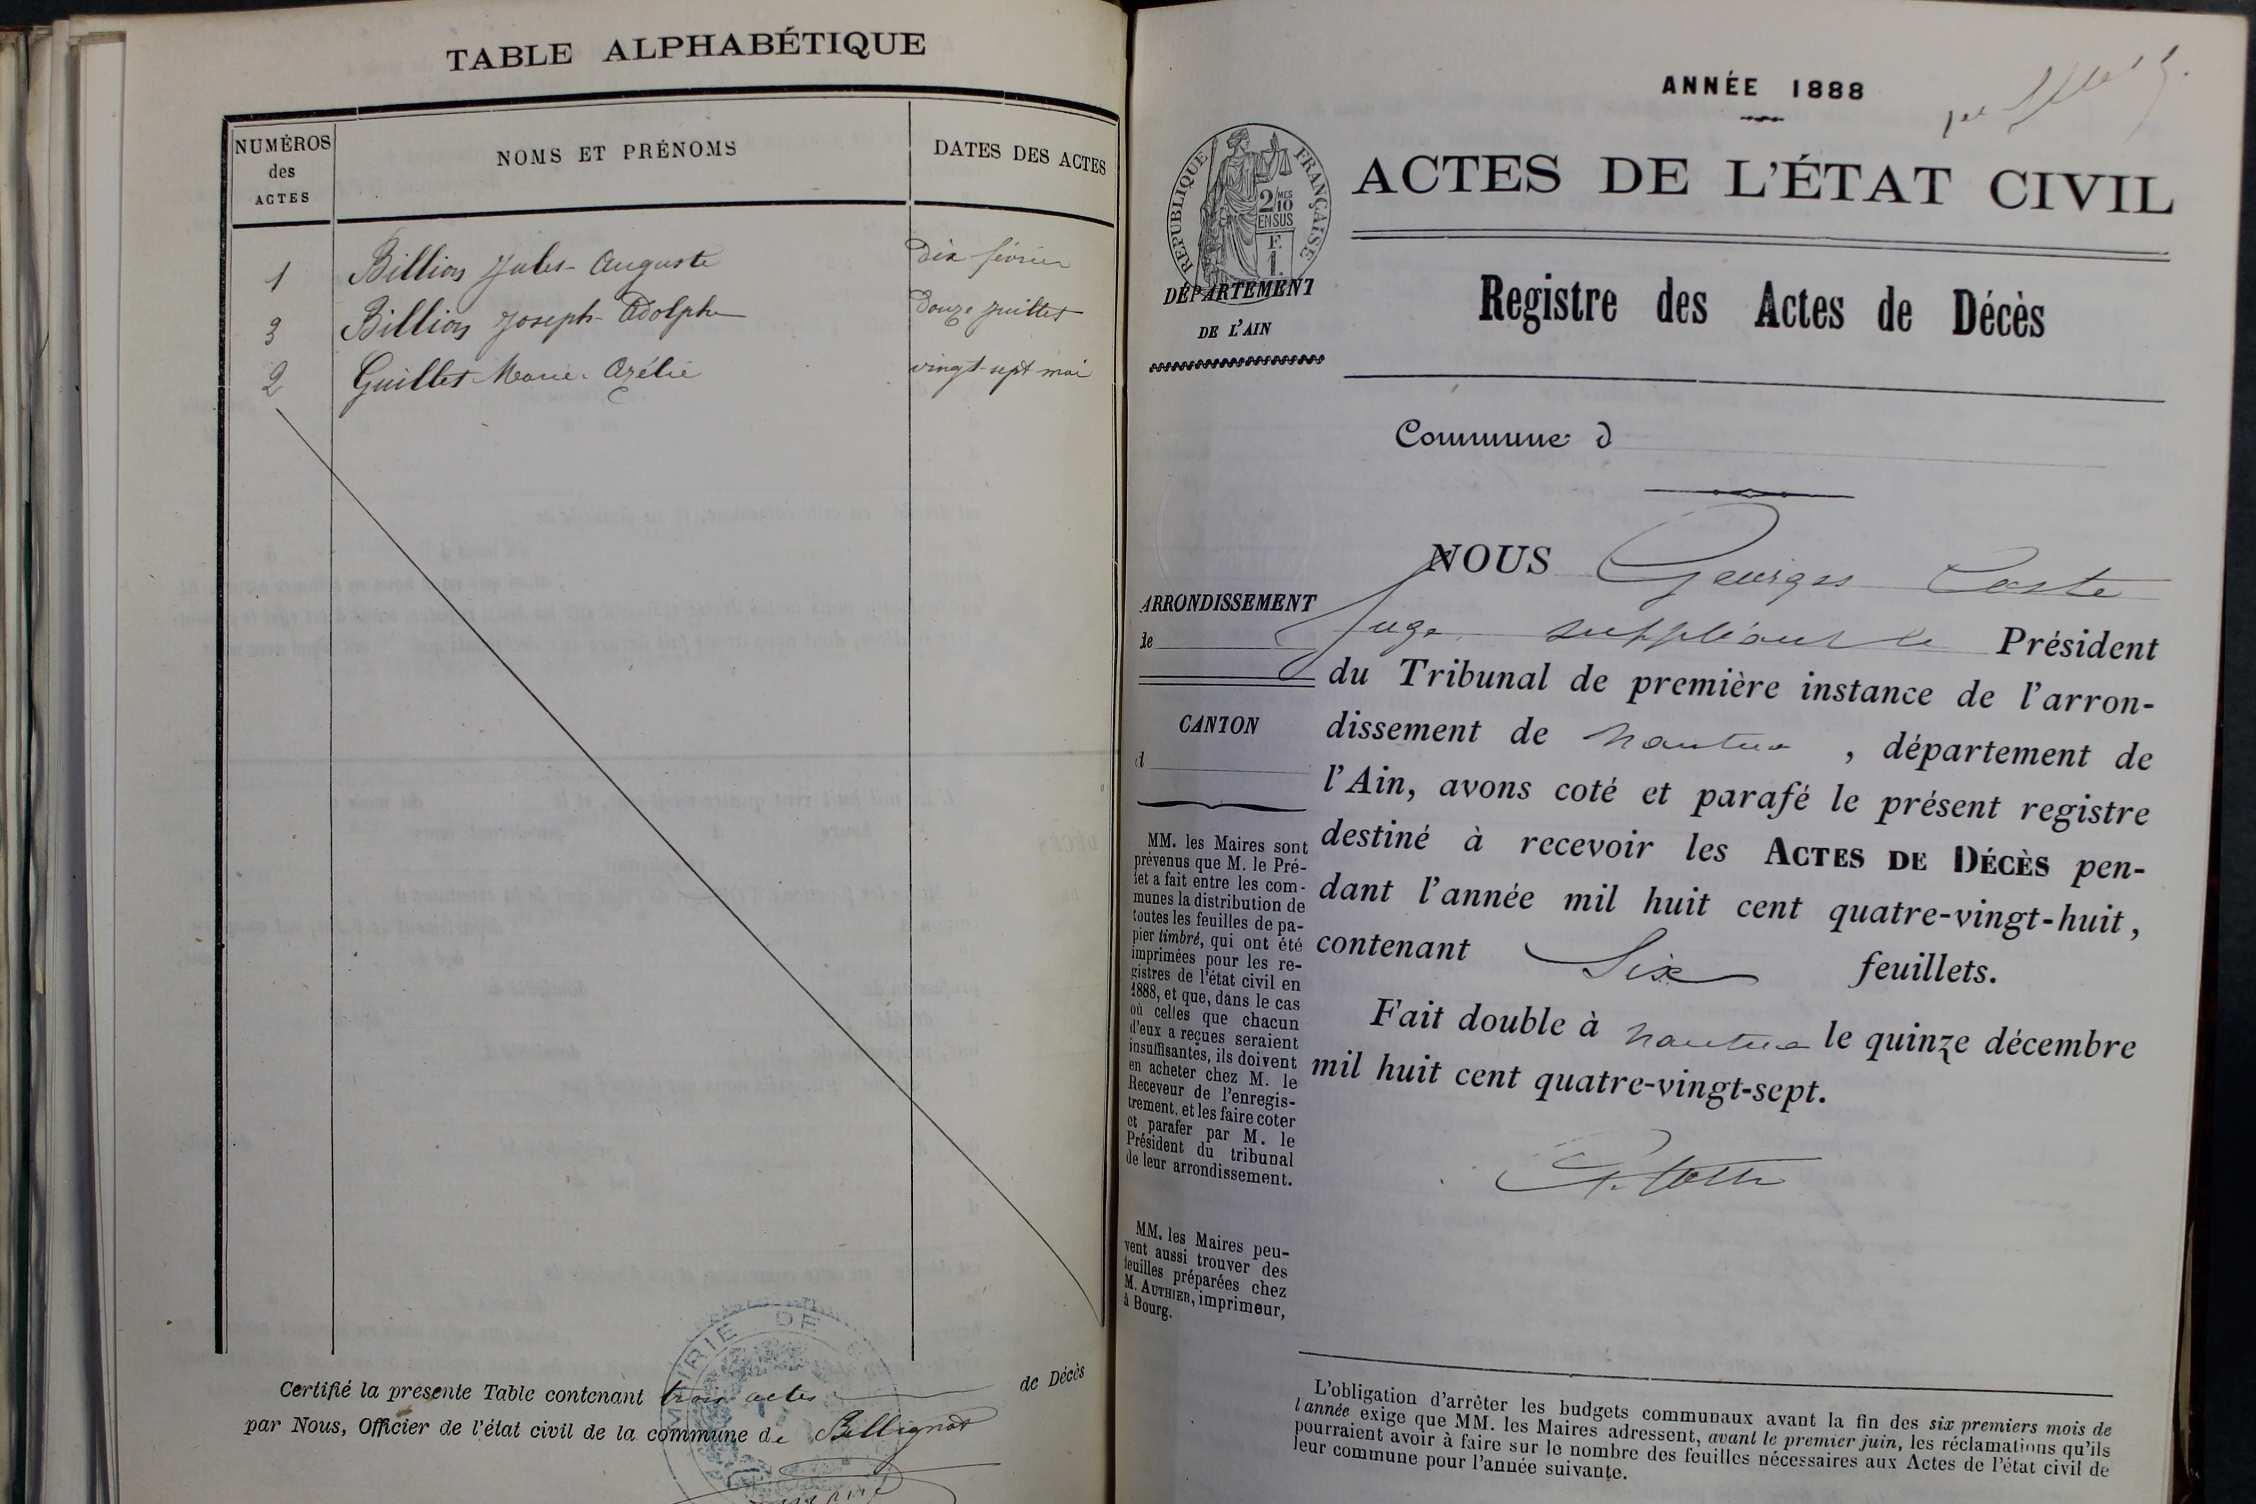 TABLE ALPHABÉTIQUE
NUMÉROS des ACTES
NOMS ET PRÉNOMS
DATES DES ACTES
1 Billion Jules Auguste Dix février
3 Billion Joseph Adolphe Douze juillet
2 Guillet Marie Azélie vingt-sept mai
MAIRIE DE
Certifié la présente Table contenant trois actes de Décès
par Nous, Officier de l'état civil de la commune de Bellignat
ANNÉE 1888
RÉPUBLIQUE FRANÇAISE
2/10 MES
EN SUS
F.
1.
ACTES DE L'ÉTAT CIVIL
DÉPARTEMENT
DE L'AIN
Registre des Actes de Décès
Commune d
ARRONDISSEMENT
de
CANTON
d
MM. les Maires sont
prévenus que M. le Pré-
fet a fait entre les com-
munes la distribution de
toutes les feuilles de pa-
pier timbré, qui ont été
imprimées pour les re-
gistres de l'état civil en
1888, et que, dans le cas
où celles que chacun
d'eux a reçues seraient
insuffisantes, ils doivent
en acheter chez M. le
Receveur de l'enregis-
trement, et les faire coter
et parafer par M. le
Président du tribunal
de leur arrondissement.
MM. les Maires peu-
vent aussi trouver des
feuilles préparées chez
M. AUTHIER, imprimeur,
à Bourg.
NOUS Georges Coste
Juge suppléant le Président
du Tribunal de première instance de l'arron-
dissement de Nantua , département de
l'Ain, avons coté et parafé le présent registre
destiné à recevoir les ACTES DE DÉCÈS pen-
dant l'année mil huit cent quatre-vingt-huit,
contenant Six feuillets.
Fait double à Nantua le quinze décembre
mil huit cent quatre-vingt-sept.
G. Coste
L'obligation d'arrêter les budgets communaux avant la fin des six premiers mois de
l'année exige que MM. les Maires adressent, avant le premier juin, les réclamations qu'ils
pourraient avoir à faire sur le nombre des feuilles nécessaires aux Actes de l'état civil de
leur commune pour l'année suivante.